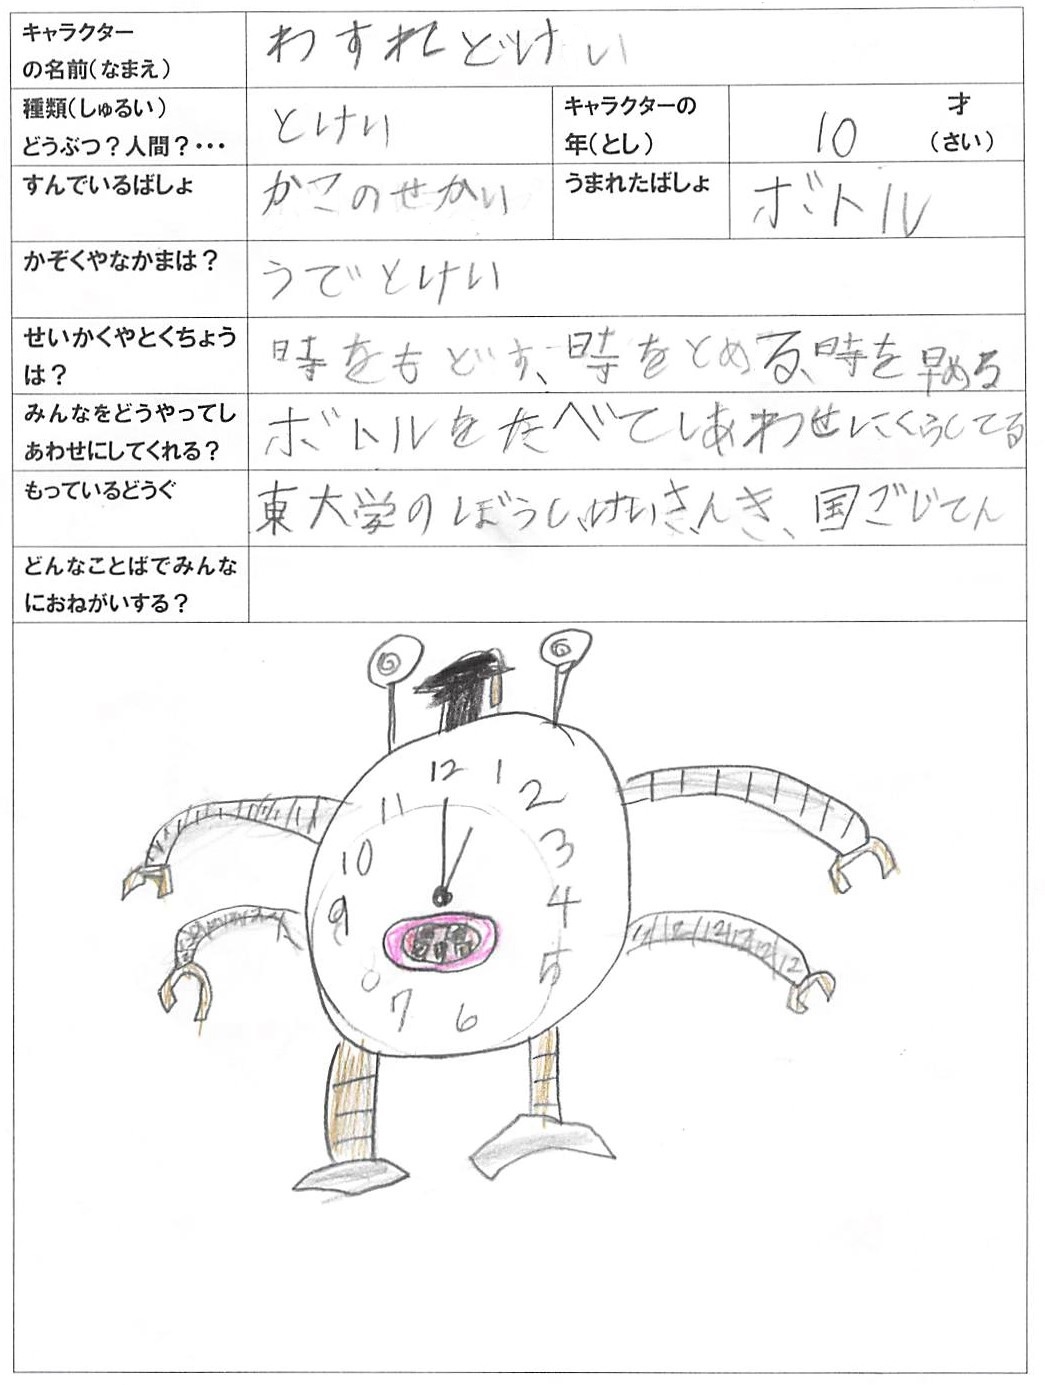 キャラクター
の名前(なまえ)
わすれどけい
種類(しゅるい)
どうぶつ?人間?・・・
とけい
キャラクターの
年(とし)
10
才
(さい)
すんでいるばしょ
かこのせかい
うまれたばしょ
ボトル
かぞくやなかまは?
うでとけい
せいかくやとくちょう
は?
時をもどす、時をとめる、時を早める
みんなをどうやってし
あわせにしてくれる?
ボトルをたべてしあわせに
もっているどうぐ
東大学のぼうし、けいさんき、国ごじてん
どんなことばでみんな
におねがいする?
12 1
11 2
10 3
9 4
8 5
7 6